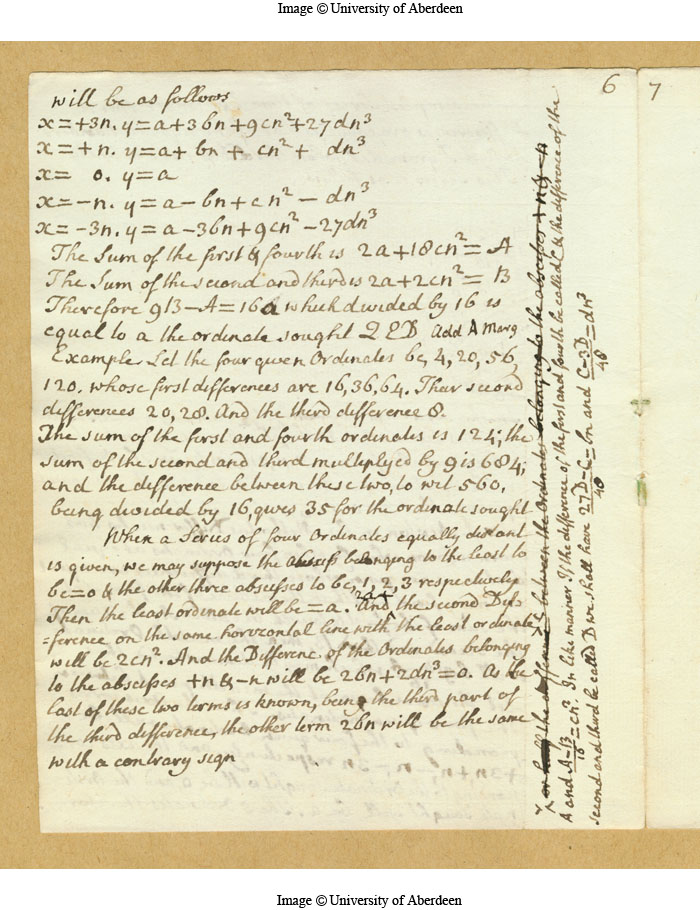 Image © University of Aberdeen
6
7
will be as follows
x=+3n. y=a+3bn+9cn²+27dn³
x=+n. y=a+ bn + cn²+ dn³
x= 0. y=a
x=-n. y=a-bn+cn²-dn³
x=-3n. y=a-3bn+9cn²-27dn³
The Sum of the first & fourth is 2a+18cn²=A
The Sum of the second and third is 2a+2cn²=B
Therefore 9B-A=16a which divided by 16 is
equal to a the ordinate sought QED add A Marg
Example Let the four given Ordinates be, 4, 20, 56,
120. whose first differences are 16, 36, 64. Their second
differences 20, 28. And the third difference 8.
The sum of the first and fourth ordinates is 124; the
sum of the second and third multiplyed by 9 is 684;
and the difference between these two, to wit 560,
being divided by 16, gives 35 for the ordinate sought
When a Series of four Ordinates equally distant
is given, we may suppose the abscisse belonging to the least to
be=0 & the other three abscisses to be, 1, 2, 3 respectively
Then the least ordinate will be=a. And the second Dif-
=ference on the same horizontal line with the least ordinate
will be 2cn². And the Difference of the Ordinates belonging
to the abscisses +n & -n will be 2bn+2dn³=0. As the
last of these two terms is known, being the third part of
the third difference, the other term 2bn will be the same
with a contrary sign
between the Ordinates belonging to the abscisses +n & -n
A and A-B/16=cn². In like manner If the difference of the first and fourth be called C & the difference of the
second and third be called D we shall have 27D-C/48=bn and C-3D/48=dn³
Image © University of Aberdeen